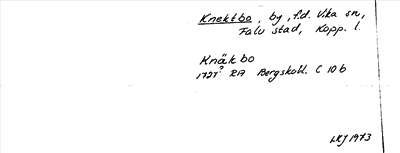 Knektbo, by, f.d. Vika sn,
Falu stad, Kopp. l.
Knäkbo
1727? RA Bergskoll. C 10 b
1973